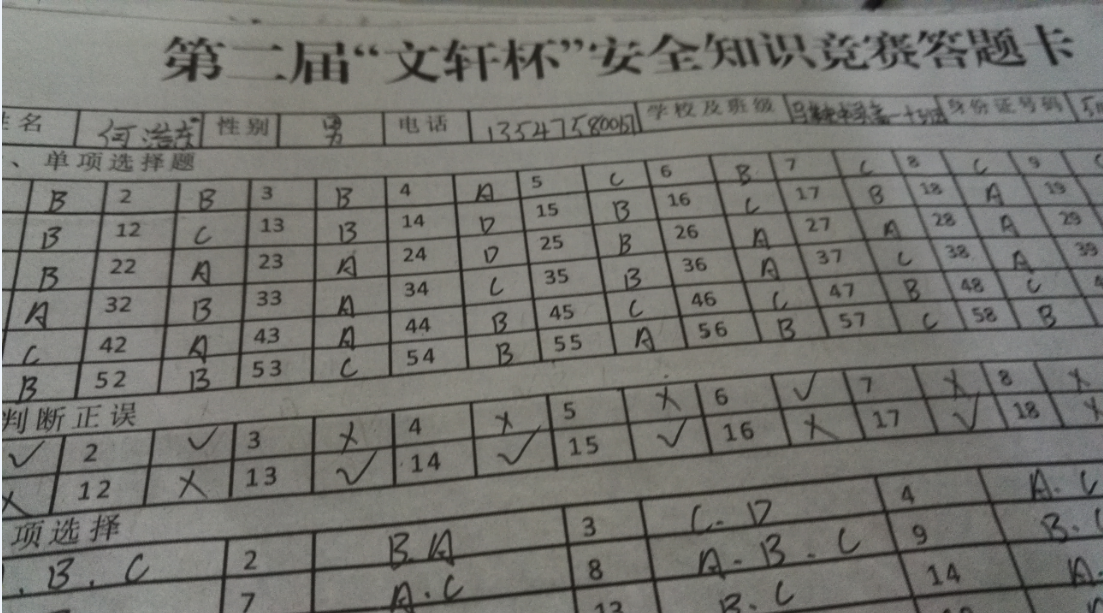 第二届“文轩杯”安全知识竞赛答题卡
姓名 何浩东 性别 男 电话 13547580067 学校及班级 身份证号码
、单项选择题
B 2 B 3 B 4 A 5 C 6 B 7 C 8 C 9
B 12 C 13 B 14 D 15 B 16 C 17 B 18 A 19
B 22 A 23 A 24 D 25 B 26 A 27 A 28 A 29
A 32 B 33 A 34 C 35 B 36 A 37 C 38 A 39
C 42 A 43 A 44 B 45 C 46 C 47 B 48 C
B 52 B 53 C 54 B 55 A 56 B 57 C 58 B
判断正误
√ 2 √ 3 × 4 × 5 × 6 √ 7 × 8 ×
× 12 × 13 √ 14 √ 15 √ 16 × 17 √ 18 ×
项选择
. B . C 2 B.A 3 C.D 4 A.C
7 A.C 8 A.B.C 9 B.
B.C 14 A.